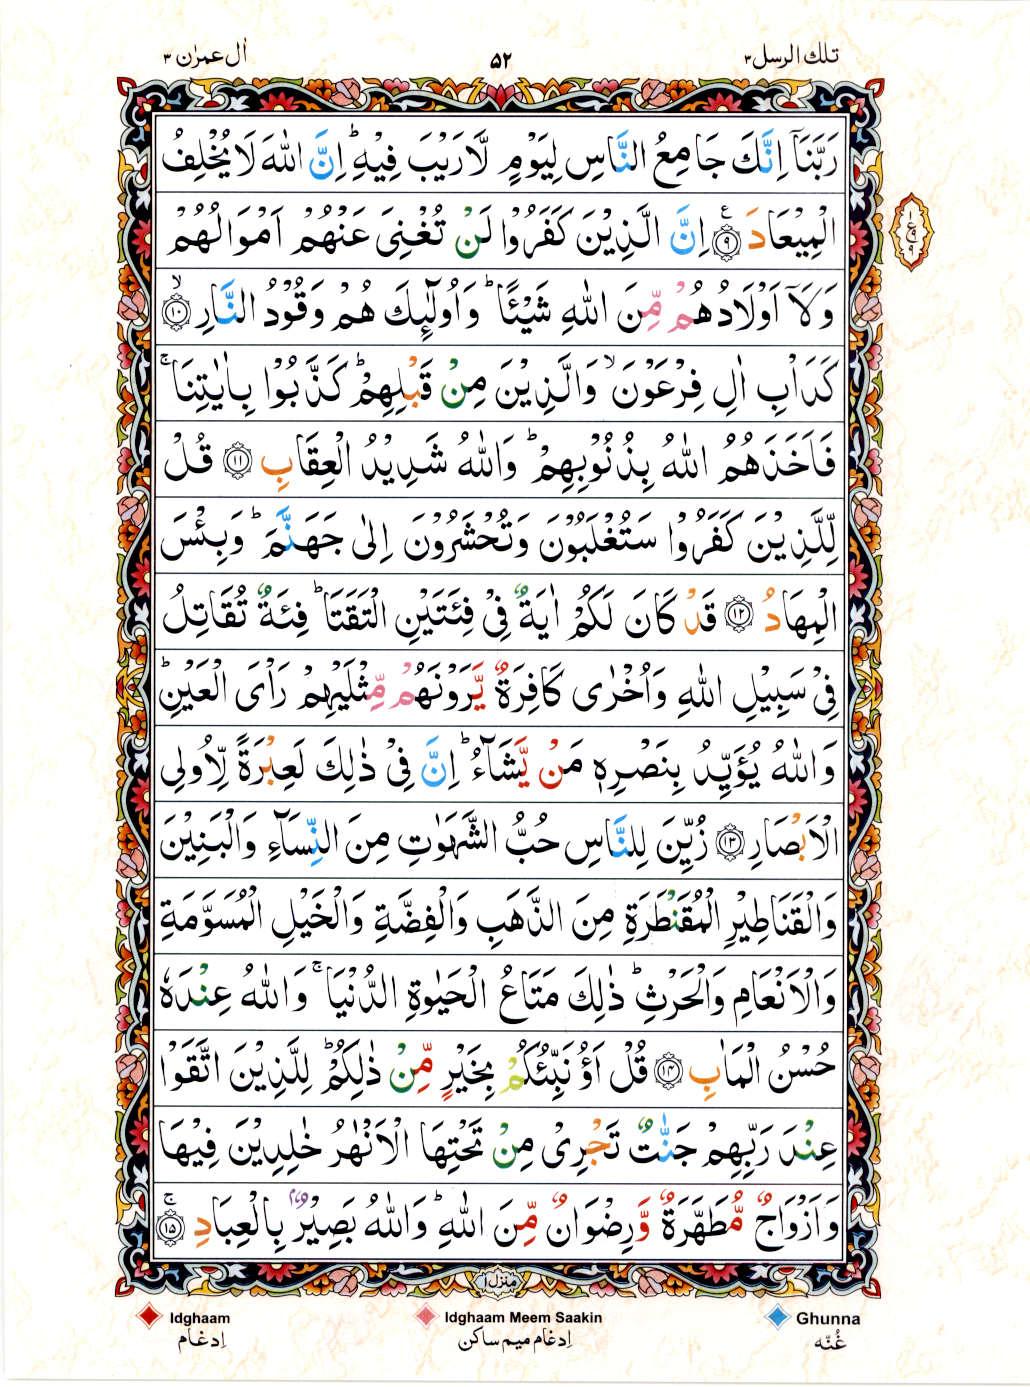 تلك الرسل ٣
٥٢
اٰل عمرٰن ٣
رَبَّنَاۤ اِنَّكَ جَامِعُ النَّاسِ لِيَوْمٍ لَّا رَيْبَ فِيْهِ ؕ اِنَّ اللّٰهَ لَا يُخْلِفُ
الْمِيْعَادَ ۠﴿۹﴾ اِنَّ الَّذِيْنَ كَفَرُوْا لَنْ تُغْنِىَ عَنْهُمْ اَمْوَالُهُمْ
وَلَاۤ اَوْلَادُهُمْ مِّنَ اللّٰهِ شَيْئًا ؕ وَاُولٰٓئِكَ هُمْ وَقُوْدُ النَّارِ ۙ﴿۱۰﴾
كَدَاْبِ اٰلِ فِرْعَوْنَ ۙ وَالَّذِيْنَ مِنْ قَبْلِهِمْ ؕ كَذَّبُوْا بِاٰيٰتِنَا ۚ
فَاَخَذَهُمُ اللّٰهُ بِذُنُوْبِهِمْ ؕ وَاللّٰهُ شَدِيْدُ الْعِقَابِ ﴿۱۱﴾ قُلْ
لِّلَّذِيْنَ كَفَرُوْا سَتُغْلَبُوْنَ وَتُحْشَرُوْنَ اِلٰى جَهَنَّمَ ؕ وَبِئْسَ
الْمِهَادُ ﴿۱۲﴾ قَدْ كَانَ لَكُمْ اٰيَةٌ فِىْ فِئَتَيْنِ الْتَقَتَا ؕ فِئَةٌ تُقَاتِلُ
فِىْ سَبِيْلِ اللّٰهِ وَاُخْرٰى كَافِرَةٌ يَّرَوْنَهُمْ مِّثْلَيْهِمْ رَاْىَ الْعَيْنِ ؕ
وَاللّٰهُ يُؤَيِّدُ بِنَصْرِهٖ مَنْ يَّشَآءُ ؕ اِنَّ فِىْ ذٰلِكَ لَعِبْرَةً لِّاُولِى
الْاَبْصَارِ ﴿۱۳﴾ زُيِّنَ لِلنَّاسِ حُبُّ الشَّهَوٰتِ مِنَ النِّسَآءِ وَالْبَنِيْنَ
وَالْقَنَاطِيْرِ الْمُقَنْطَرَةِ مِنَ الذَّهَبِ وَالْفِضَّةِ وَالْخَيْلِ الْمُسَوَّمَةِ
وَالْاَنْعَامِ وَالْحَرْثِ ؕ ذٰلِكَ مَتَاعُ الْحَيٰوةِ الدُّنْيَا ۚ وَاللّٰهُ عِنْدَهٗ
حُسْنُ الْمَاٰبِ ﴿۱۴﴾ قُلْ اَؤُنَبِّئُكُمْ بِخَيْرٍ مِّنْ ذٰلِكُمْ ؕ لِلَّذِيْنَ اتَّقَوْا
عِنْدَ رَبِّهِمْ جَنّٰتٌ تَجْرِىْ مِنْ تَحْتِهَا الْاَنْهٰرُ خٰلِدِيْنَ فِيْهَا
وَاَزْوَاجٌ مُّطَهَّرَةٌ وَّرِضْوَانٌ مِّنَ اللّٰهِ ؕ وَاللّٰهُ بَصِيْرٌۢ بِالْعِبَادِ ۚ﴿۱۵﴾
منزل ١
Ghunna
غُنّه
Idghaam Meem Saakin
اِدغام ميم ساكن
Idghaam
اِدغام